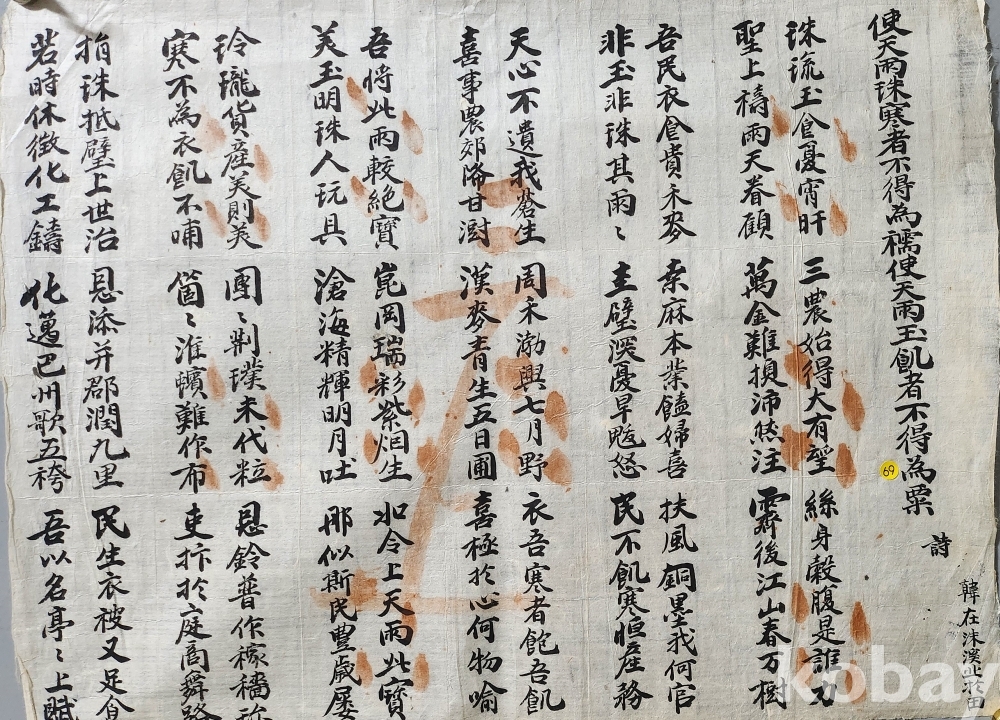 使天雨珠寒者不得為襦使天雨玉飢者不得為粟
詩
韓在洙溪
69
珠琉玉食憂宵旰 三農始得大有望 絲身穀腹是誰力
聖上禱雨天眷顧 萬金難換沛然注 霽後江山春万樹
吾民衣食貴禾麥 桑麻本業饁婦喜 扶風銅墨我何官
非玉非珠其雨〻 圭璧深憂旱魃怒 民不飢寒恒産務
天心不遺我蒼生 周禾渤興七月野 衣吾寒者飽吾飢
喜事農郊降甘澍 漢麥青生五日圃 喜極於心何物喻
吾將此雨較絶寶 崑岡瑞彩紫烟生 如令上天雨此寶
美玉明珠人玩具 滄海精輝明月吐 那似斯民豊歲屢
玲瓏貨産美則美 團〻荊璞未代粒 恩鈴普作稼穡
寒不為衣飢不哺 箇〻淮蠙難作布 吏抃於庭商舞路
捐珠抵璧上世治 恩添并郡潤九里 民生衣被又足食
若時休徵化工鑄 化邁巴州歌五袴 吾以名亭〻上賦
kobay